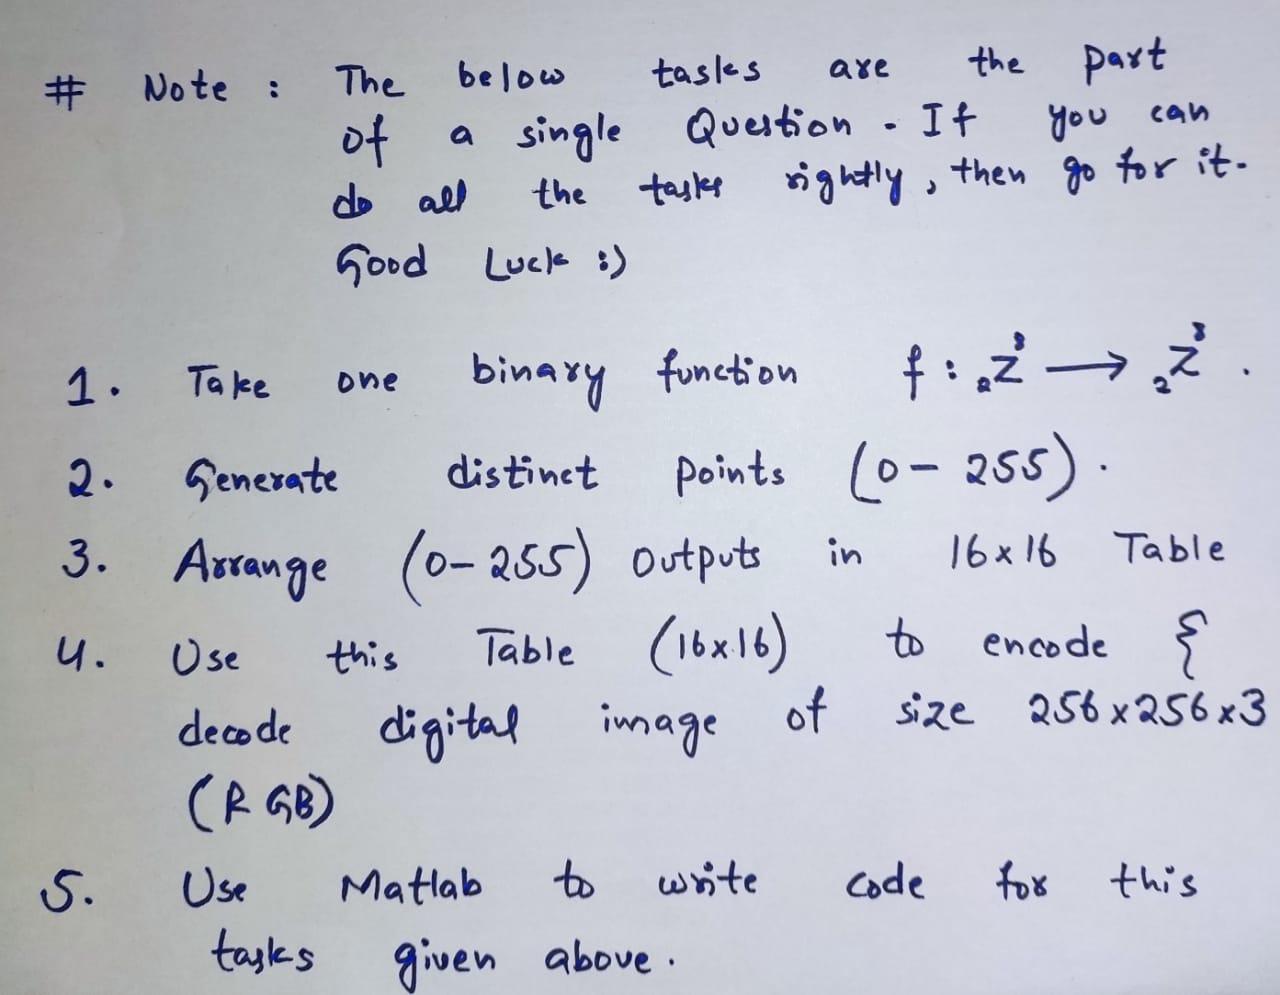 # Note : The below tasks are the part
of a single Question. If you can
do all the tasks rightly, then go for it.
Good Luck :)
1. Take one binary function f : ₂Z⁸ → ₂Z⁸.
2. Generate distinct points (0-255).
3. Arrange (0-255) outputs in 16x16 Table
4. Use this Table (16x16) to encode &
decode digital image of size 256x256x3
(RGB)
5. Use Matlab to write code for this
tasks given above.